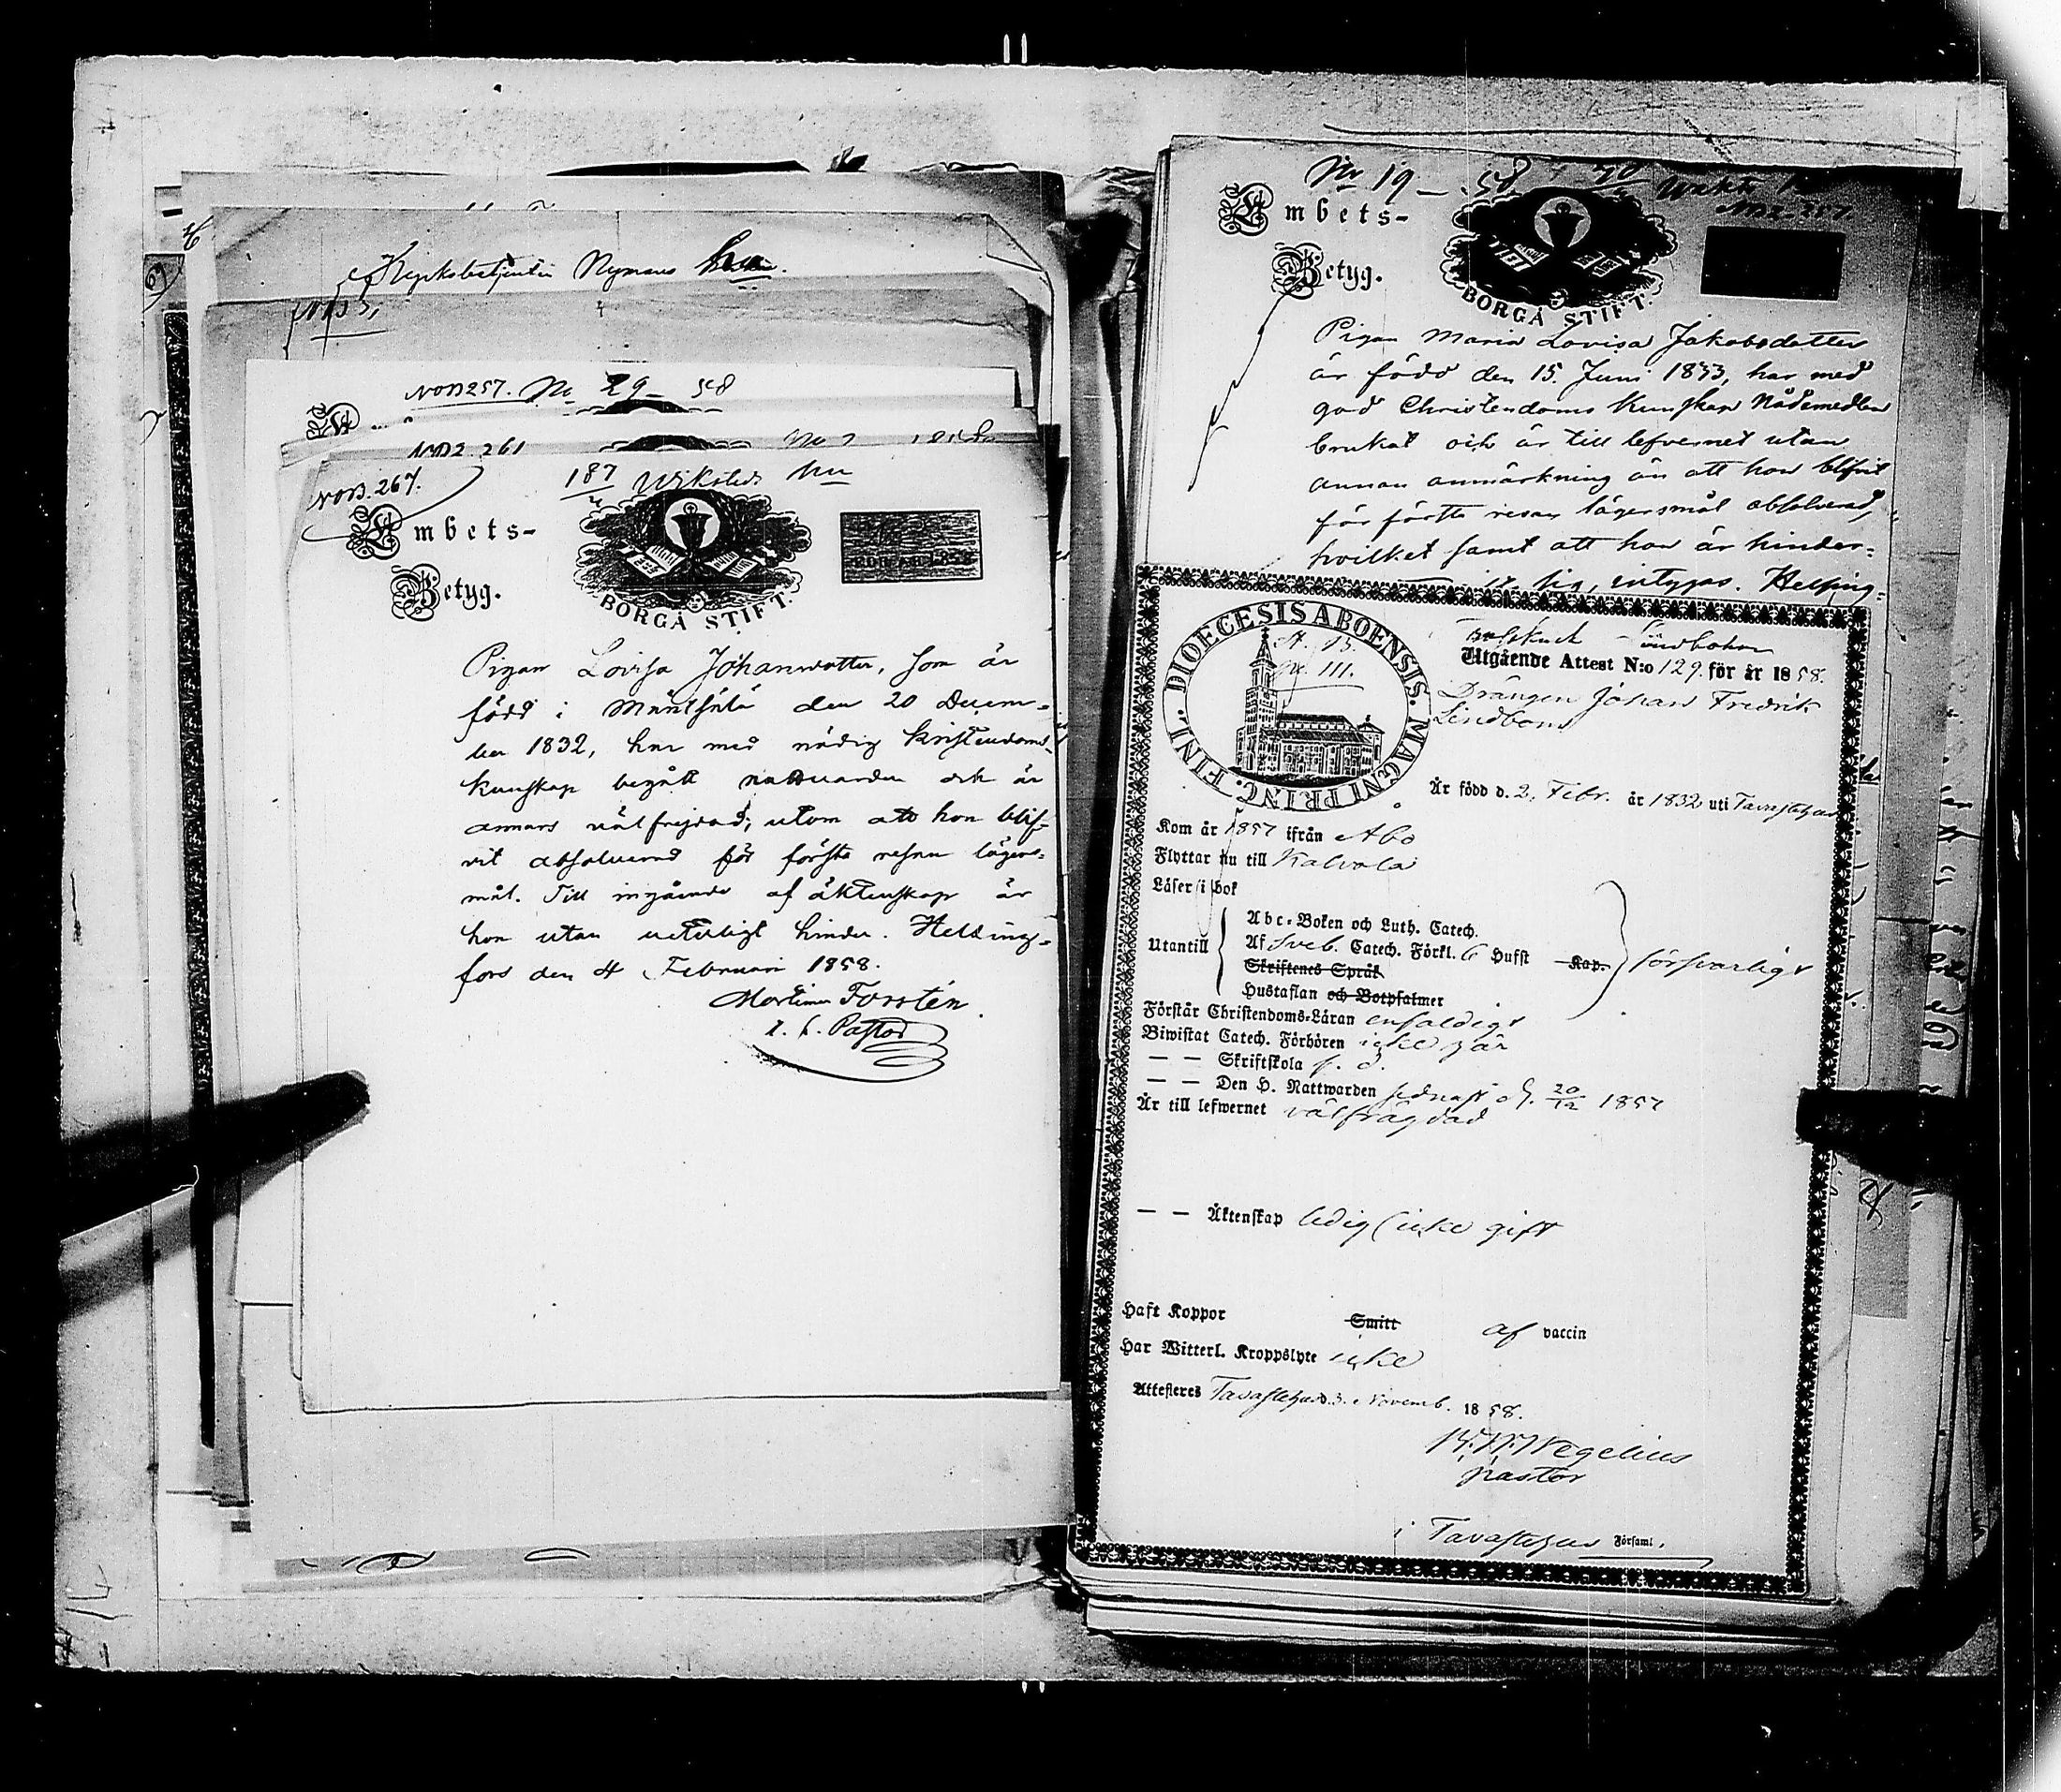 Kyrkobetjenten Nymans hu
N:o B 257. No 29 – 58
NB2. 261
N:o B. 267.
187 Wiksteds hu
Embets-
Betyg.
BORGÅ STIFT.
Pigan Lovisa Johansdotter, som är
född i Mäntsälä den 20 Decem-
ber 1832, har med nödig kristendoms-
kunskap begått nattvarden och är
annars välfrejdad; utom att hon blif-
vit absolverad för första resan lägers-
mål. Till ingående af äktenskap är
hon utan veterligt hinder. Helsing-
fors den 4 Februari 1858.
Mortimer Forstén
t. f. Pastor
No 19 – 58
NB2. 257.
Embets-
Betyg.
BORGÅ STIFT.
Pigan Maria Lovisa Jakobsdotter
är född den 15. Juni 1833, har med
god Christendoms kunskap Nådemedlen
brukat och är till lefvernet utan
annan anmärkning än att hon blifvit
för första resan lägersmål absolverad,
hvilket samt att hon är hinder-
sig, intygas. Helsing-
DIOECESIS ABOENSIS. MAGNI PRINC. FINL.
Lindbohm
Utgående Attest N:o 129. för år 1858.
Drängen Johan Fredrik
Lindbom
Är född d. 2. Febr. år 1832 uti Tavastehus
Kom år 1857 ifrån Åbo
Flyttar nu till Kalvola
Läser i bok
Abc-Boken och Luth. Catech.
Utantill Af Sveb. Catech. Förkl. 6 Hufst Kap. försvarligt
Skriftenes Språk
Hustaflan och Botpsalmer
Förstår Christendoms-Läran enfaldigt
Biwistat Catech. Förhören icke här
— — Skriftskola
— — Den H. Nattwarden sednast d. 20/12 1857
Är till lefwernet välfrägdad
— — Äktenskap ledig (icke gift
Haft Koppor Smitt af vaccin
Har Witterl. Kroppslyte icke
Attesteres Tavastehus d. 3. Novemb. 1858.
Wegelius
pastor
i Tavastehus Församl.